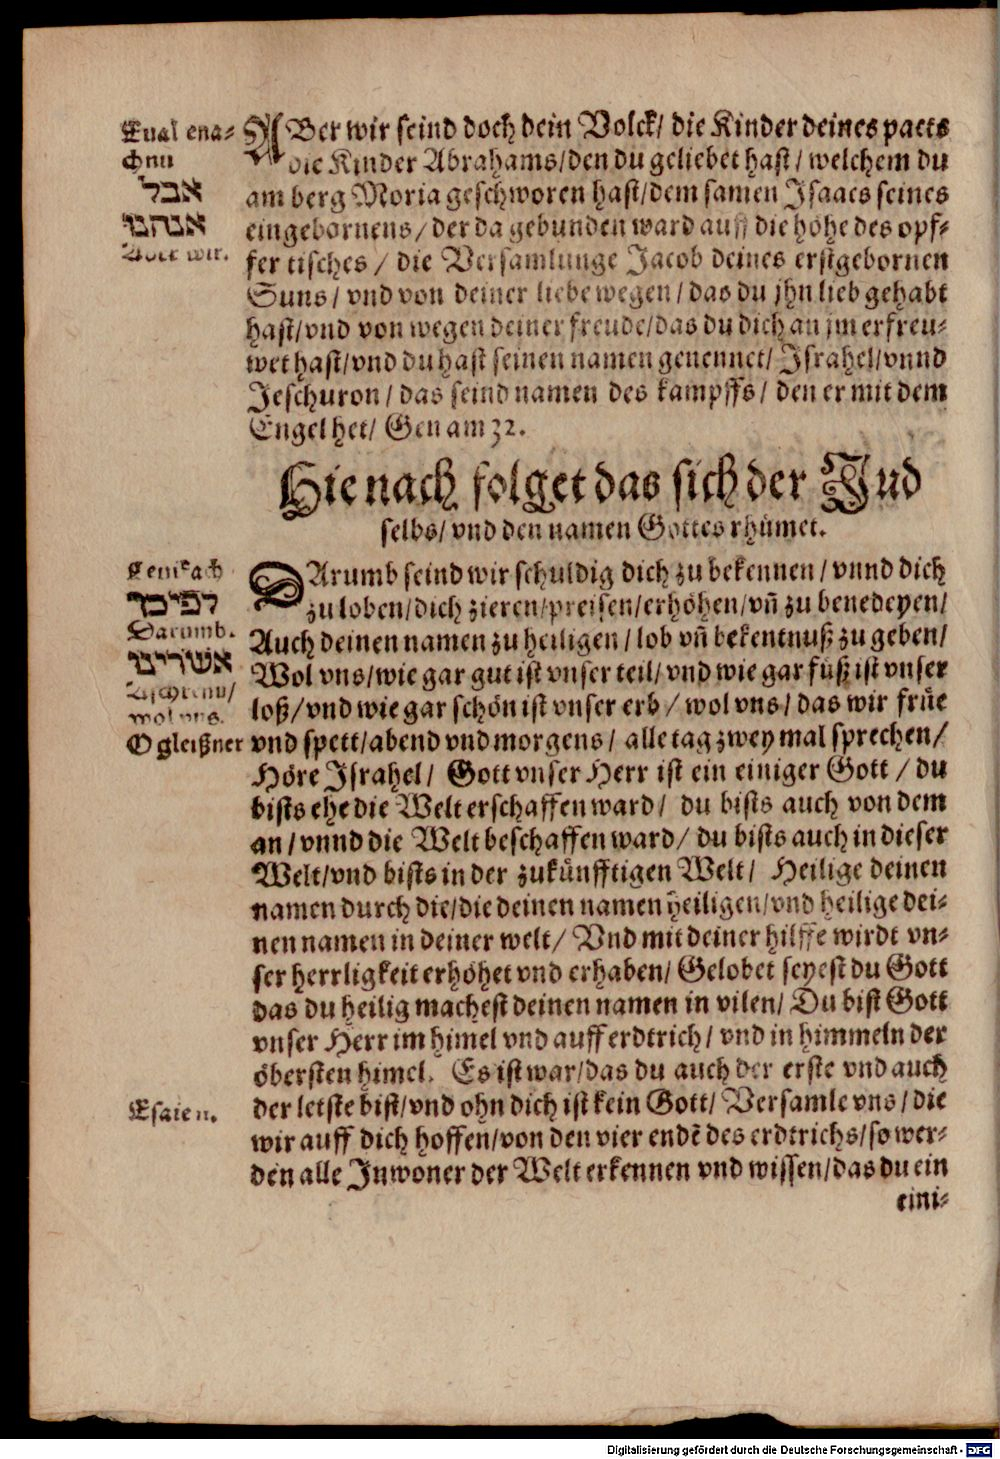 Eual ena-
chnu
אבל
אנחנו
Aber wir.
ABer wir seind doch dein Volck/ die Kinder deines pacts
die Kinder Abrahams/den du geliebet hast/ welchem du
am berg Moria geschworen hast/dem samen Isaacs seines
eingebornens/ der da gebunden ward auff die höhe des opf-
fer tisches/ die Versamlunge Jacob deines erstgebornen
Suns/ vnd von deiner liebe wegen/ das du jhn lieb gehabt
hast/vnd von wegen deiner freude/das du dich an jm erfreu-
wet hast/vnd du hast seinen namen genennet/ Israhel/vnnd
Jeschuron/ das seind namen des kampffs/ den er mit dem
Engel het/ Gen am 32.
Hie nach folget das sich der Jud
selbs/ vnd den namen Gottes rhümet.
Lemkach
לפיכך
Darumb.
אשרינו
Aschrenu/
wol vns.
O gleißner
DArumb seind wir schuldig dich zu bekennen/ vnnd dich
zu loben/dich zieren/preisen/erhöhen/vñ zu benedeyen/
Auch deinen namen zu heiligen/ lob vñ bekentnuß zu geben/
Wol vns/wie gar gut ist vnser teil/ vnd wie gar süß ist vnser
loß/ vnd wie gar schön ist vnser erb/ wol vns/ das wir früe
vnd spett/abend vnd morgens/ alle tag zwey mal sprechen/
Höre Israhel/ Gott vnser Herr ist ein einiger Gott/ du
bists ehe die Welt erschaffen ward/ du bists auch von dem
an/ vnnd die Welt beschaffen ward/ du bists auch in dieser
Welt/vnd bists in der zukünfftigen Welt/ Heilige deinen
namen durch die/die deinen namen heiligen/vnd heilige dei-
nen namen in deiner welt/ Vnd mit deiner hilffe wirdt vn-
ser herrligkeit erhöhet vnd erhaben/ Gelobet seyest du Gott
das du heilig machest deinen namen in vilen/ Du bist Gott
vnser Herr im himel vnd auff erdtrich/ vnd in himmeln der
öbersten himel. Es ist war/das du auch der erste vnd auch
Esaie n.
der letste bist/vnd ohn dich ist kein Gott/ Versamle vns/ die
wir auff dich hoffen/von den vier endẽ des erdtrichs/so wer-
den alle Inwoner der Welt erkennen vnd wissen/das du ein
eini-
Digitalisierung gefördert durch die Deutsche Forschungsgemeinschaft - DFG